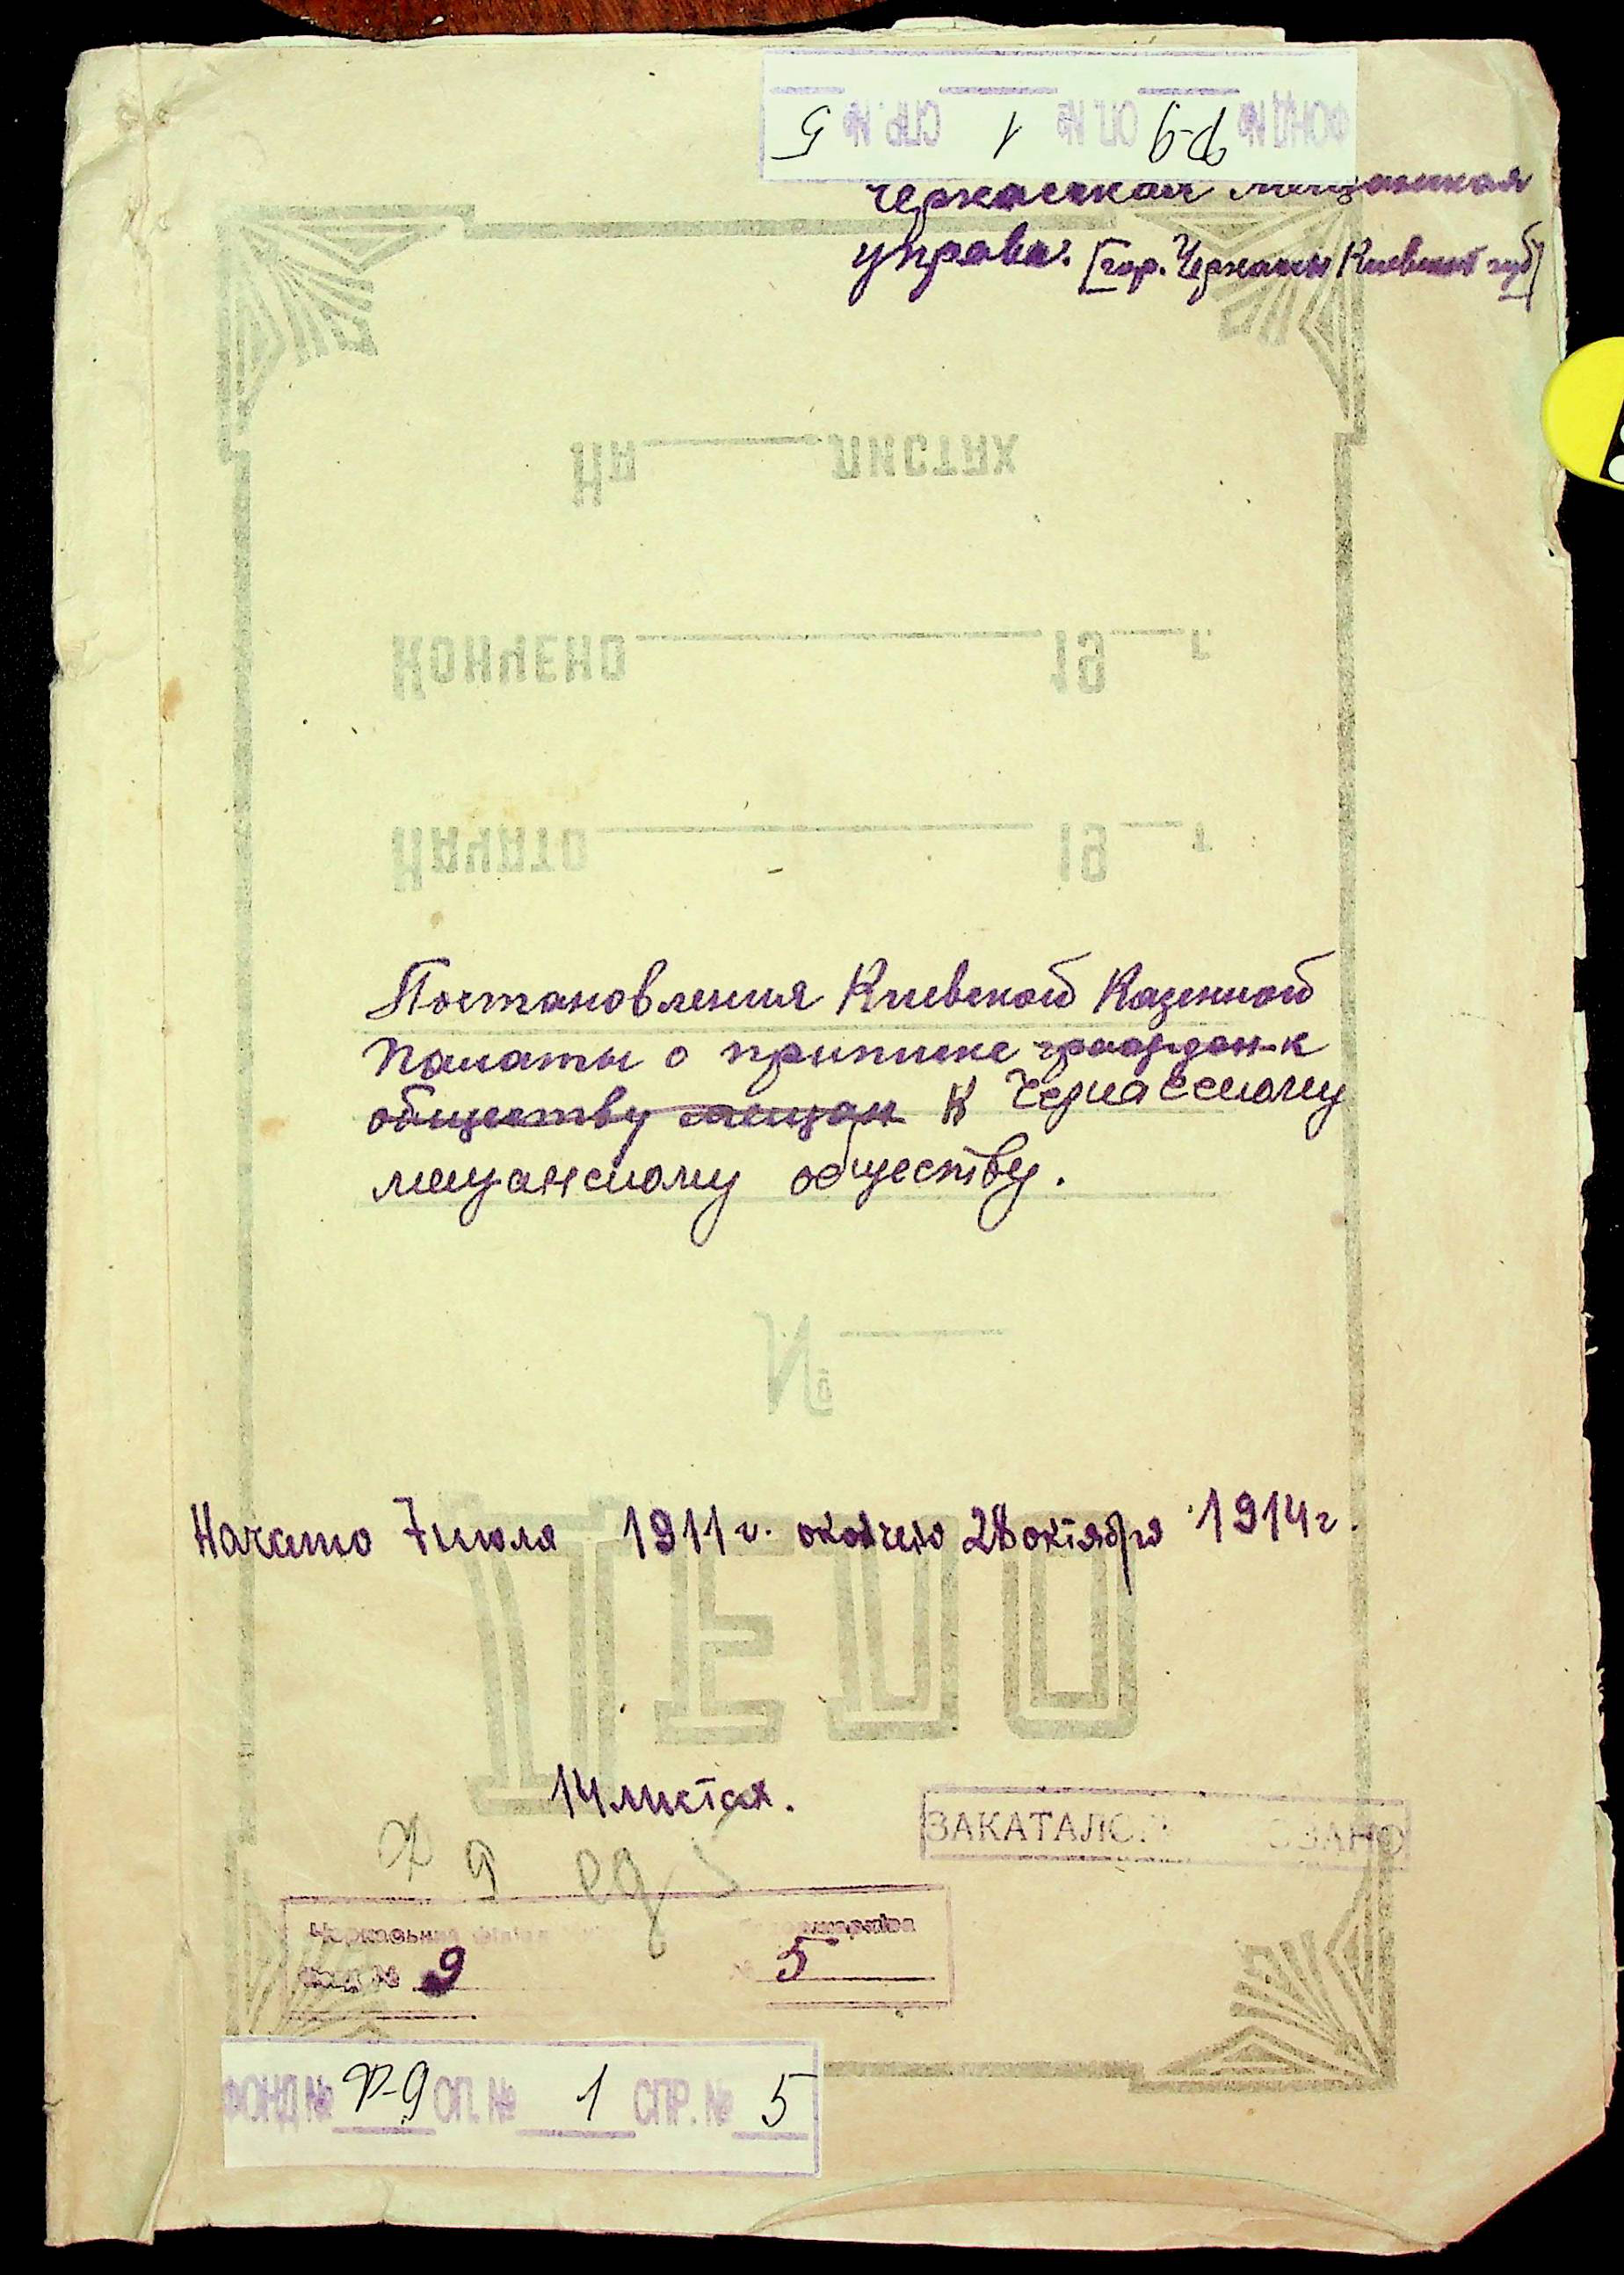 ФОНД № Р-9 ОП. № 1 СПР. № 5
Черкасская Мещанская
управа. [гор. Черкассы Киевской губ]
На листах
Кончено 19 г.
Начато 19 г.
Постановления Киевской Казенной
Палаты о приписке граждан к
обществу мещан К Черкасскому
мещанскому обществу.
№
Начато 7 июля 1911 г. окончено 28 октября 1914 г.
ДЕЛО
14 листах.
9 ед 5
ЗАКАТАЛОГ ОВАНО
9 № 5
ФОНД № Р-9 ОП. № 1 СПР. № 5